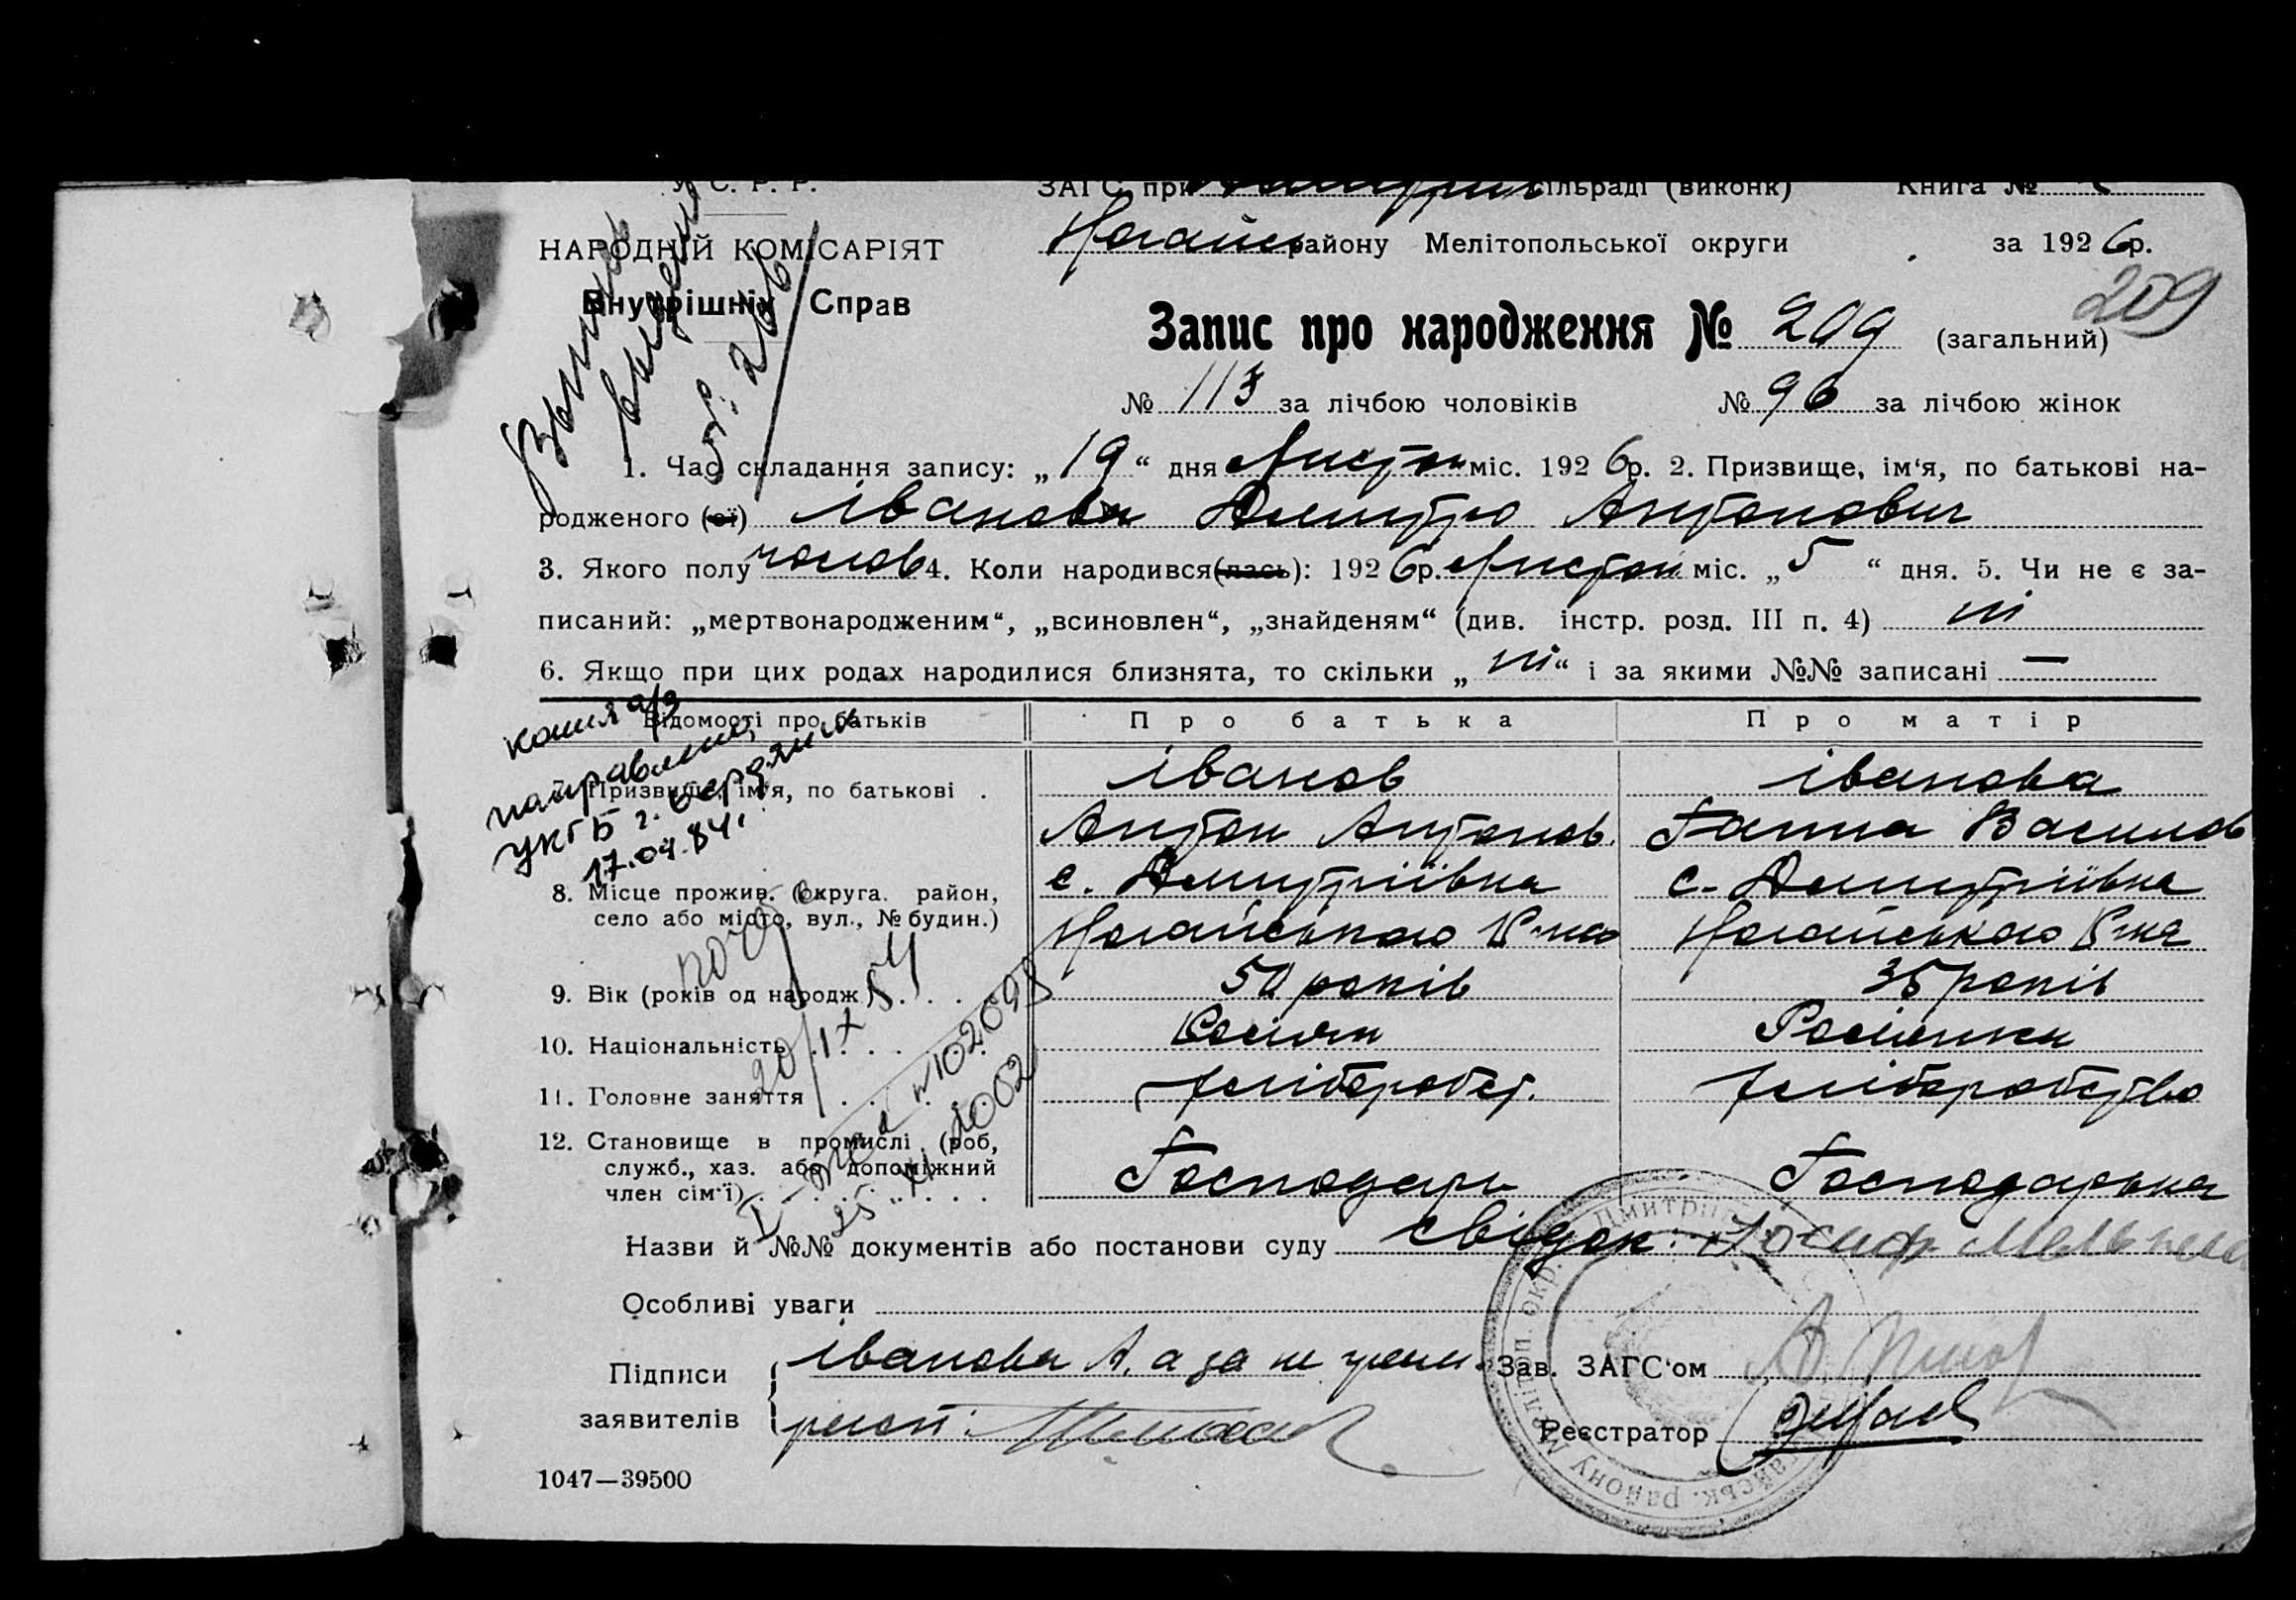 У. С. Р. Р.
ЗАГС при сільраді (виконк) Книга №
НАРОДНІЙ КОМІСАРІЯТ
Внутрішніх Справ
Ногайськ району Мелітопольської округи за 1926р.
209
Запис про народження № 209 (загальний)
№ 113 за лічбою чоловіків № 96 за лічбою жінок
№ 266
1. Час складання запису: „19“ дня Листоп міс. 1926р. 2. Призвище, ім'я, по батькові на-
родженого (ої) Іванов Дмитро Антонович
3. Якого полу чолов 4. Коли народився(лась): 1926р. Листоп міс. „5“ дня. 5. Чи не є за-
писаний: „мертвонародженим“, „всиновлен“, „знайденям“ (див. інстр. розд. III п. 4) ні
6. Якщо при цих родах народилися близнята, то скільки „ні“ і за якими №№ записані —
Відомості про батьків Про батька Про матір
копия а/з
направлена
УКГБ г. Бердянськ
17.04.84г.
Призвище, ім'я, по батькові . Іванов Іванова
Антон Антонов. Ганна Васильов
8. Місце прожив. (округа. район,
село або місто, вул., № будин.)
с. Дмитріївка с. Дмитріївка
Ногайського Р-на Ногайського Р-на
9. Вік (років од народж.) . . . . 50 років 35 років
10. Національність . . . . . Росіян Росіянка
20/IX 54
11. Головне заняття . . . . . хліборобст. хліборобство
№ 102098
25 XI 2002
12. Становище в промислі (роб,
служб., хаз. або допоміжний
член сім'ї) . . . . . . . . Господарь Господарька
Назви й №№ документів або постанови суду свідок: Йосиф Мельник
Особливі уваги
Підписи
заявителів
Іванов А. а за не грам.
расп.
Зав. ЗАГС'ом
Реєстратор
1047—39500